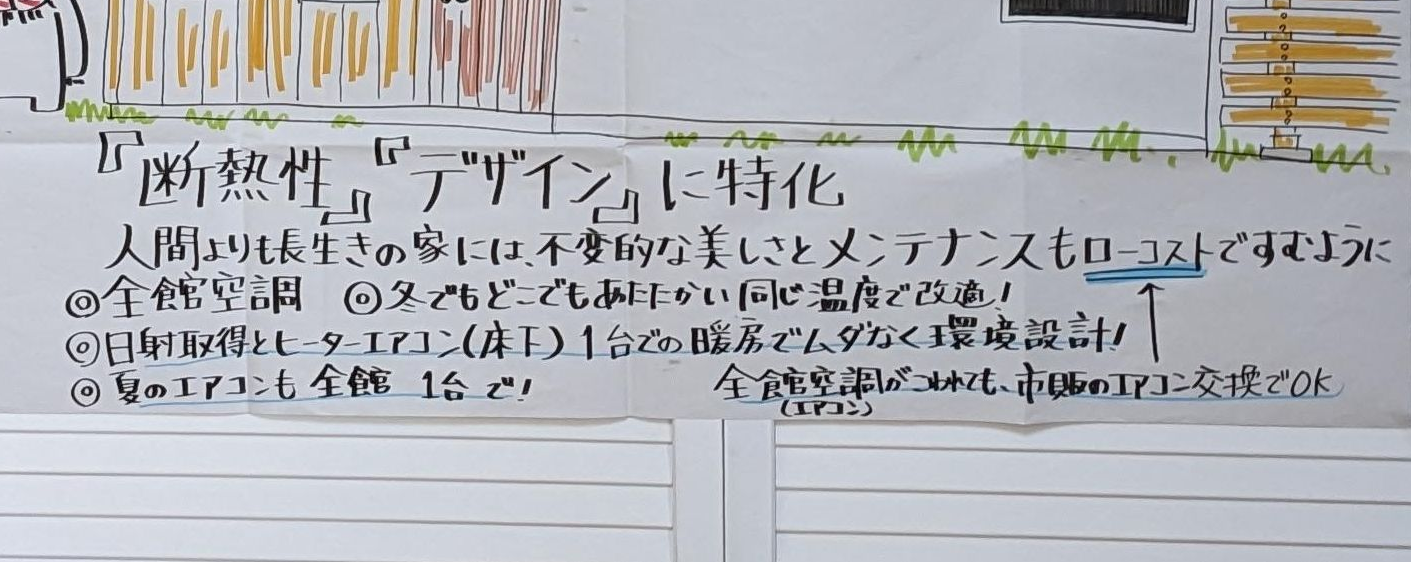 『断熱性』『デザイン』に特化
人間よりも長生きの家には、不変的な美しさとメンテナンスもローコストですむように
◎全館空調　◎冬でもどこでもあたたかい同じ温度で改適!
◎日射取得とヒーターエアコン(床下)1台での暖房でムダなく環境設計!
◎夏のエアコンも全館 1台で!
↑
全館空調がこわれても、市販のエアコン交換でOK
(エアコン)